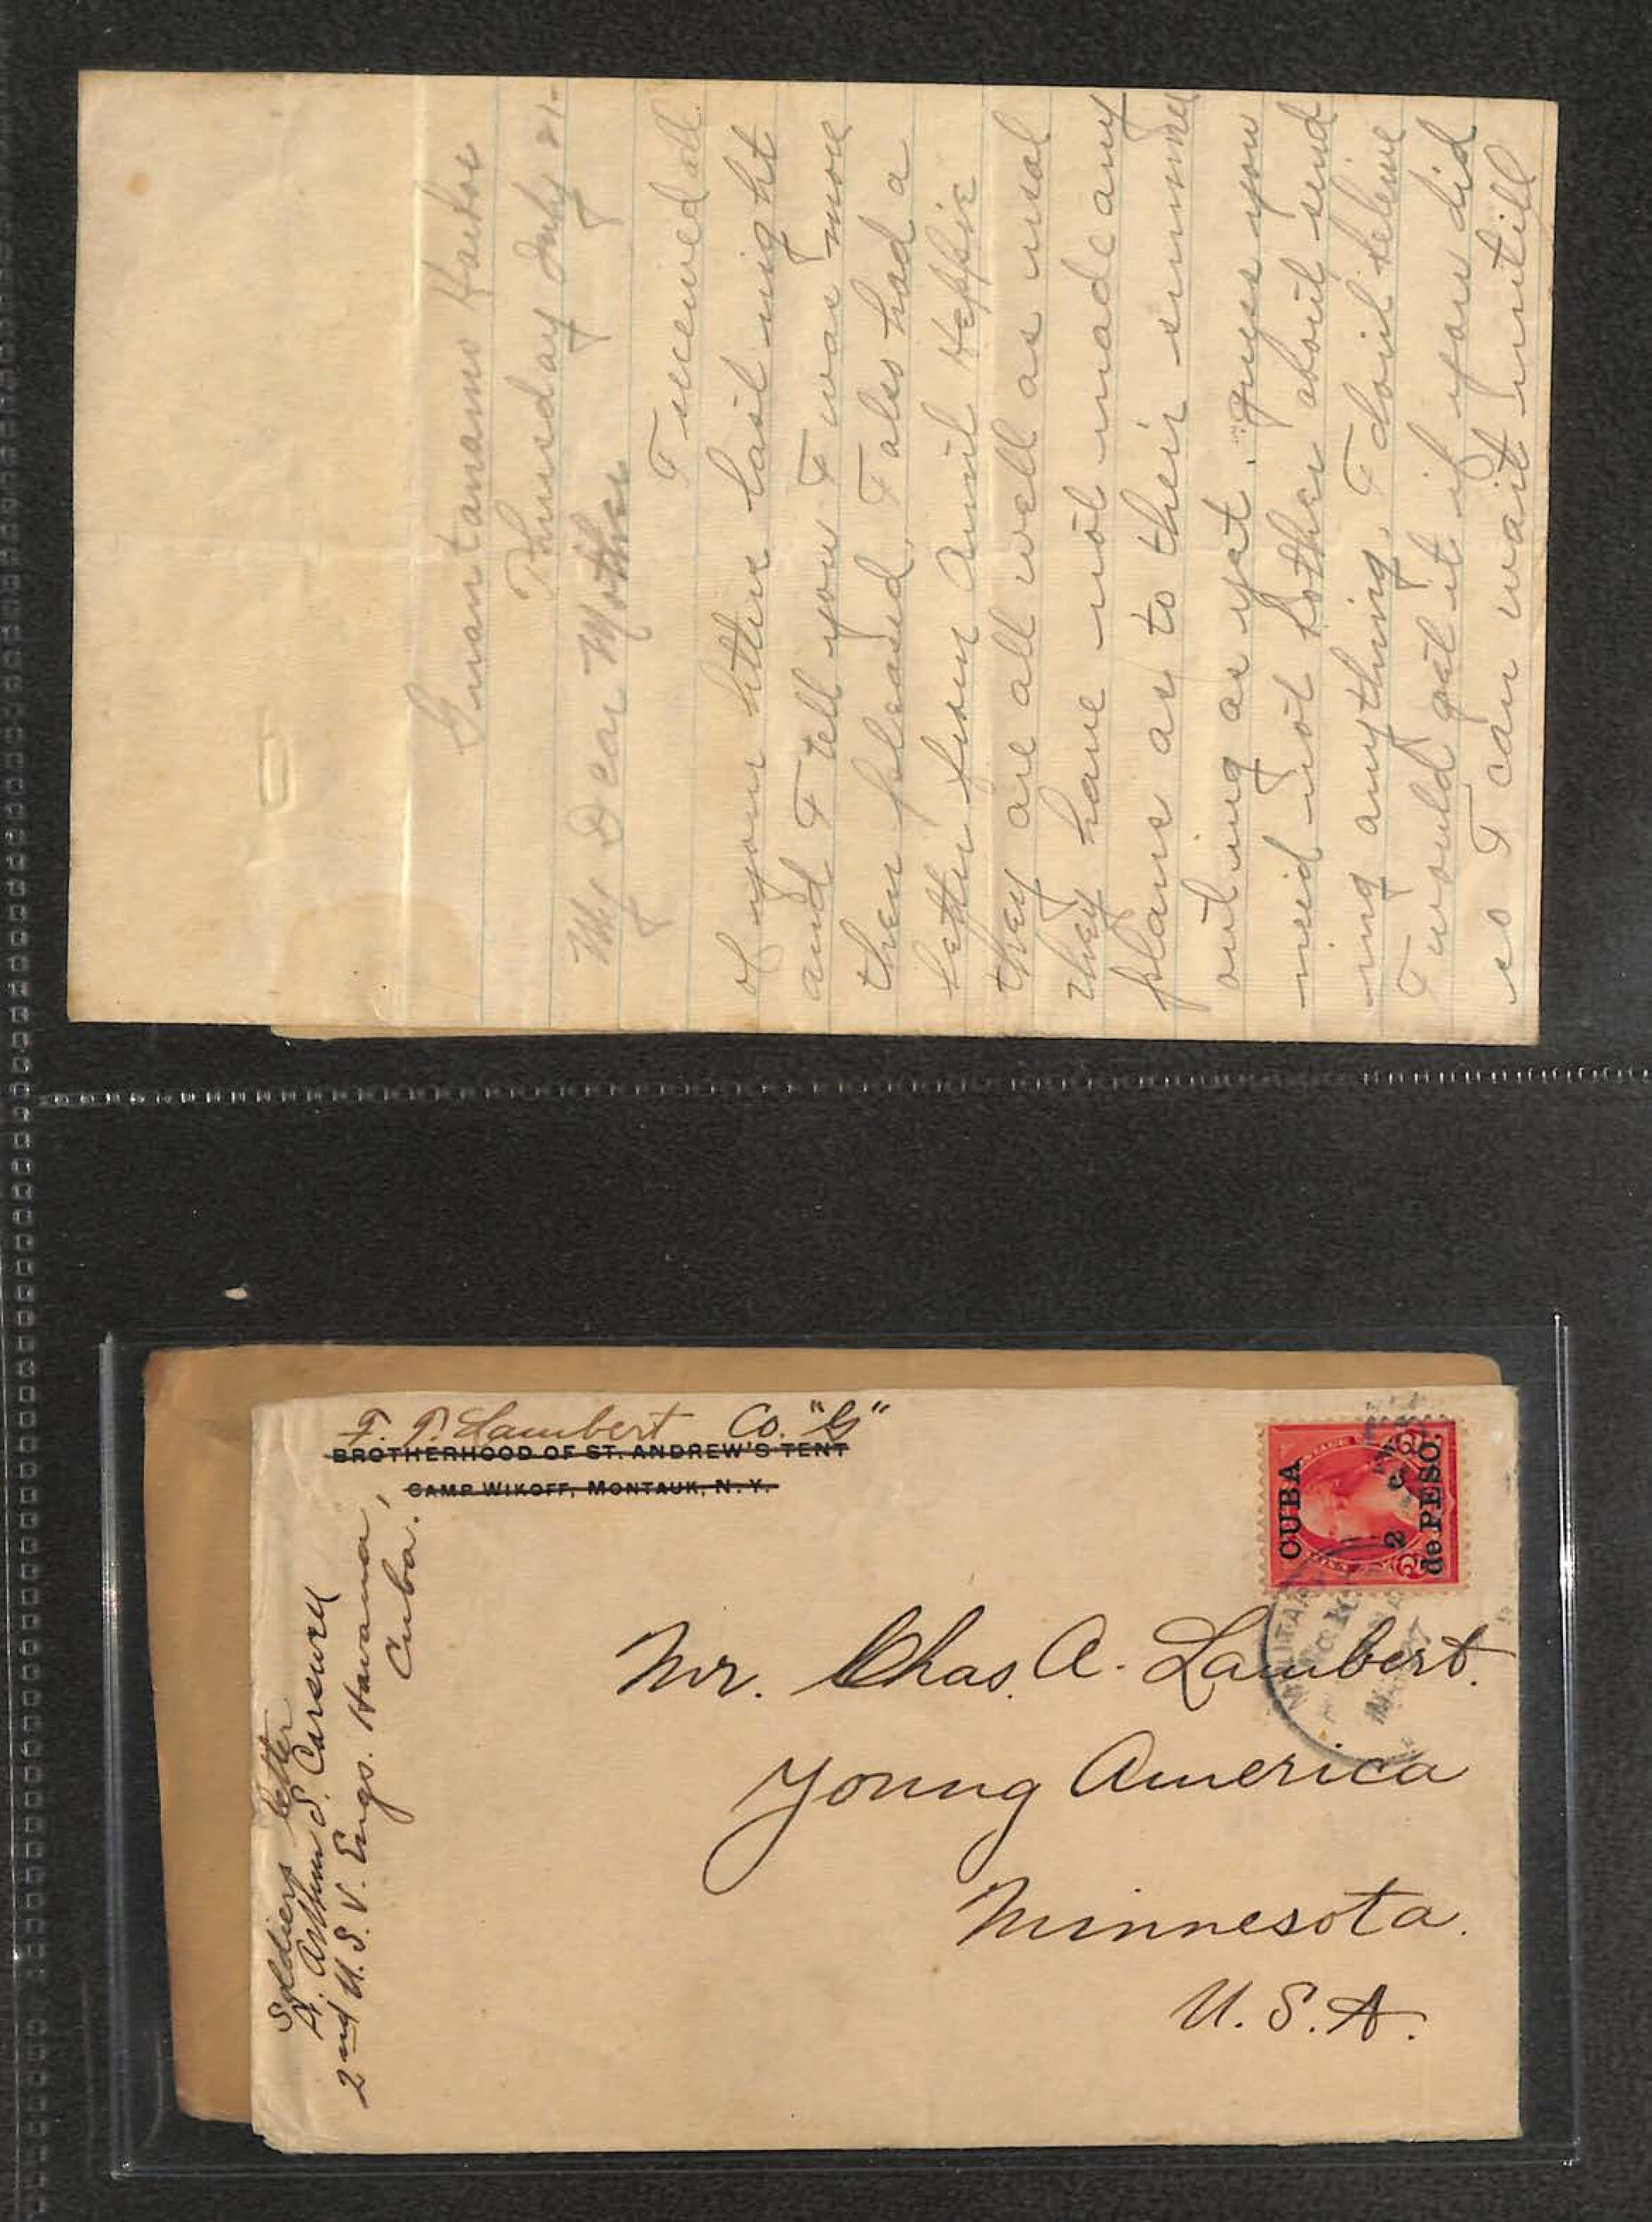 Guantanamo Harbor
Thursday July 21-
My Dear Mother
I received all
of your letters last night
and I tell you I was more
then pleased I also had a
letter from Aunt Heppie
they are all well as usal
they have not made any
plans as to their summer
outing as yet. guess you
need not bother about send
ing anything. I dont believe
I would get it if you did
so I can wait untill
F. P. Lambert Co. "G"
BROTHERHOOD OF ST. ANDREW'S TENT
CAMP WIKOFF, MONTAUK, N. Y.
Soldiers letter
Arthur S. Carswell
2nd U. S. V. Engs. Havana,
Cuba.
CUBA
2 c.
de PESO.
2 2
MILITARY
Mr. Chas. A. Lambert.
Young America
Minnesota.
U. S. A.